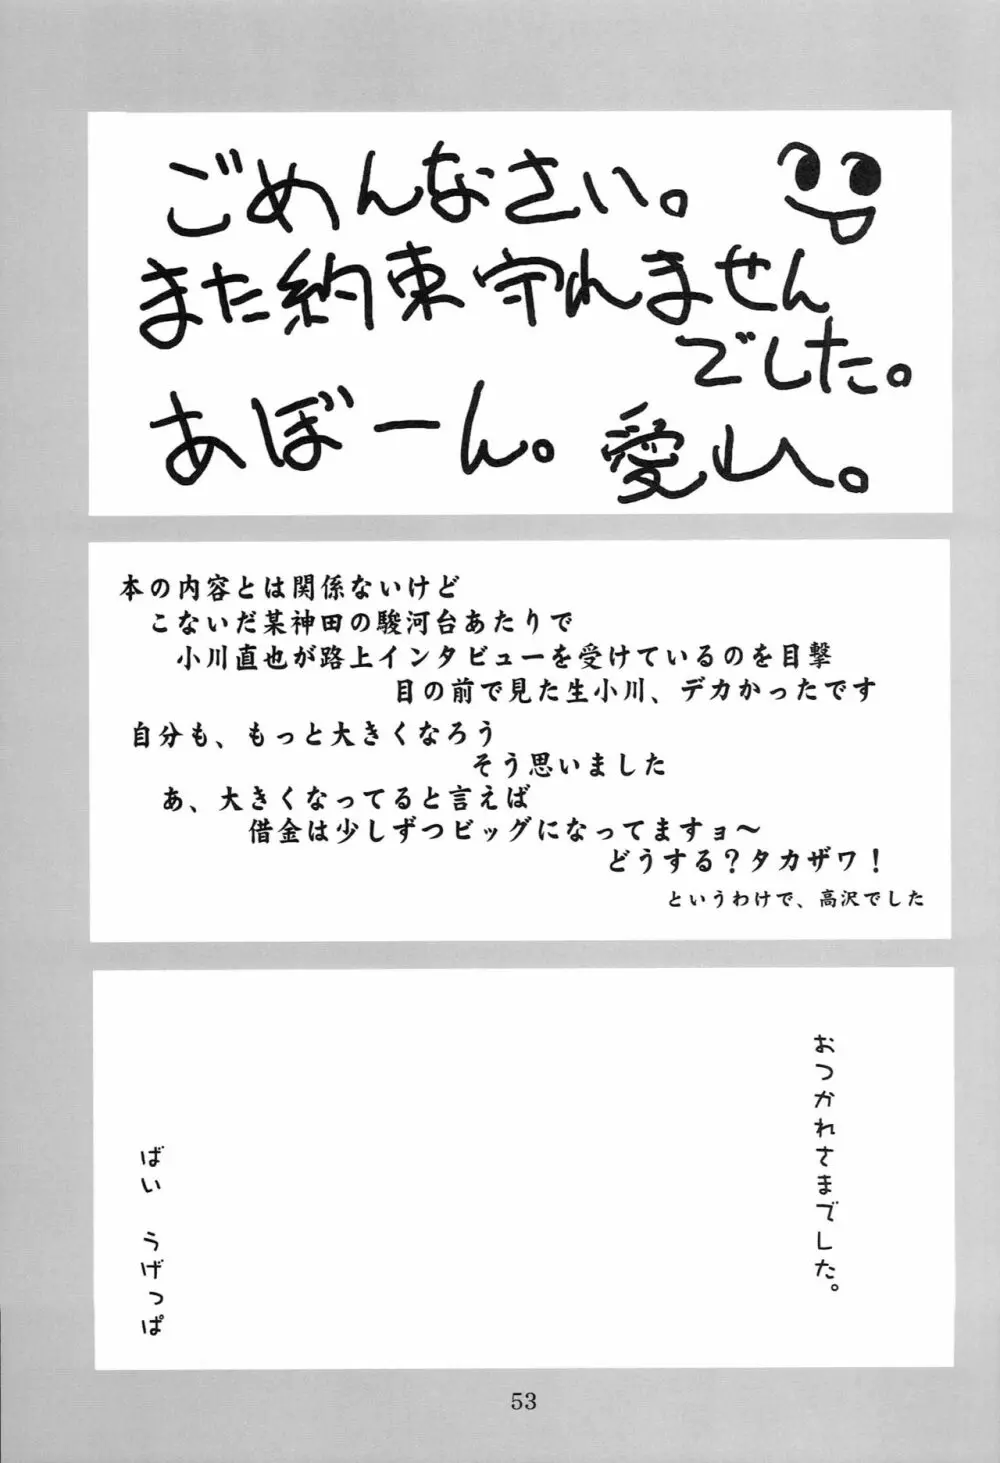 ごめんなさい。
また約束守れません
でした。
あぼーん。愛山。
本の内容とは関係ないけど
こないだ某神田の駿河台あたりで
小川直也が路上インタビューを受けているのを目撃
目の前で見た生小川、デカかったです
自分も、もっと大きくなろう
そう思いました
あ、大きくなってると言えば
借金は少しずつビッグになってますョ～
どうする？タカザワ！
というわけで、高沢でした
おつかれさまでした。
ばい　うげっぱ
53